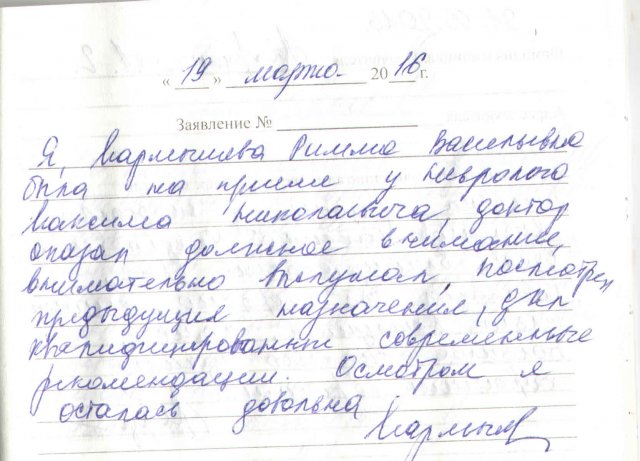 « 19 » марта 2016 г.
Заявление №
Я, Кармышева Римма Васильевна
была на приеме у невролога
Максима Николаевича, доктор
оказал должное внимание,
внимательно выслушал, посмотрел
предыдущия назначения, дал
квалифицированные современные
рекомендации. Осмотром я
осталась довольна